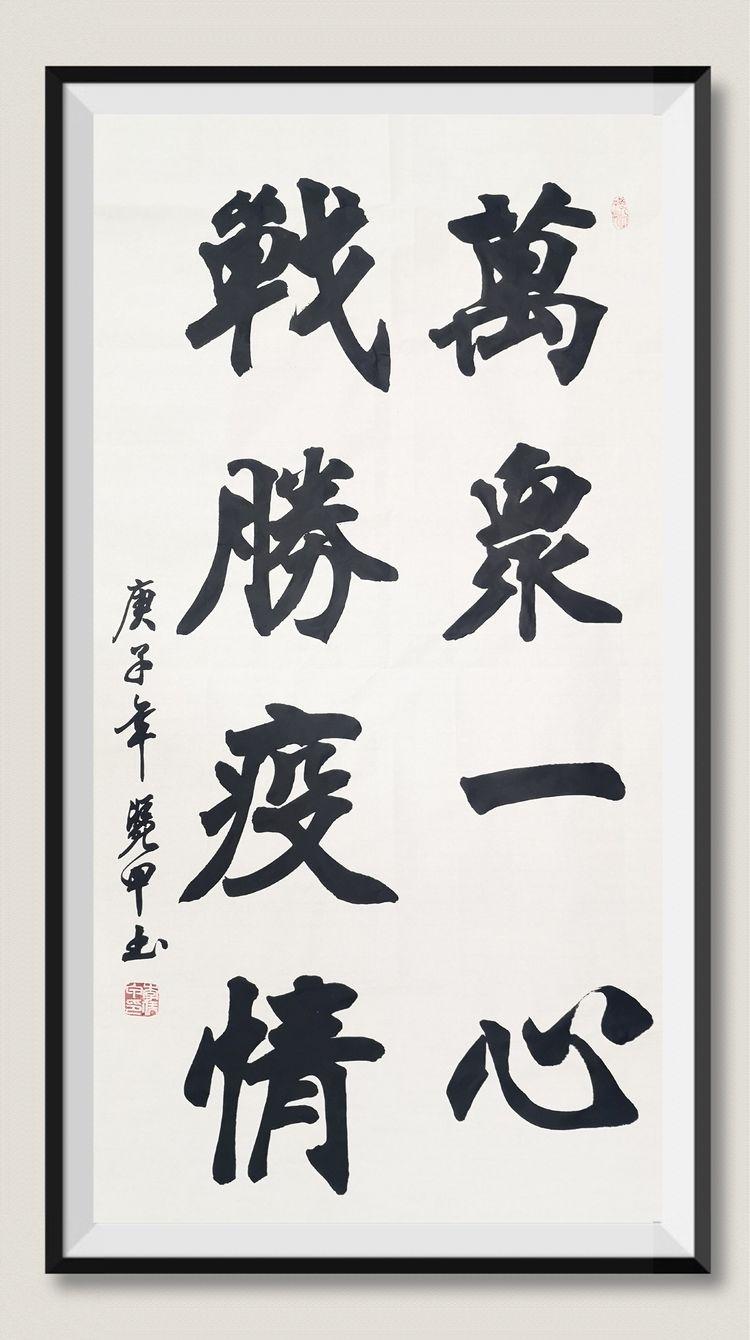 萬衆一心
戰勝疫情
庚子年甲书